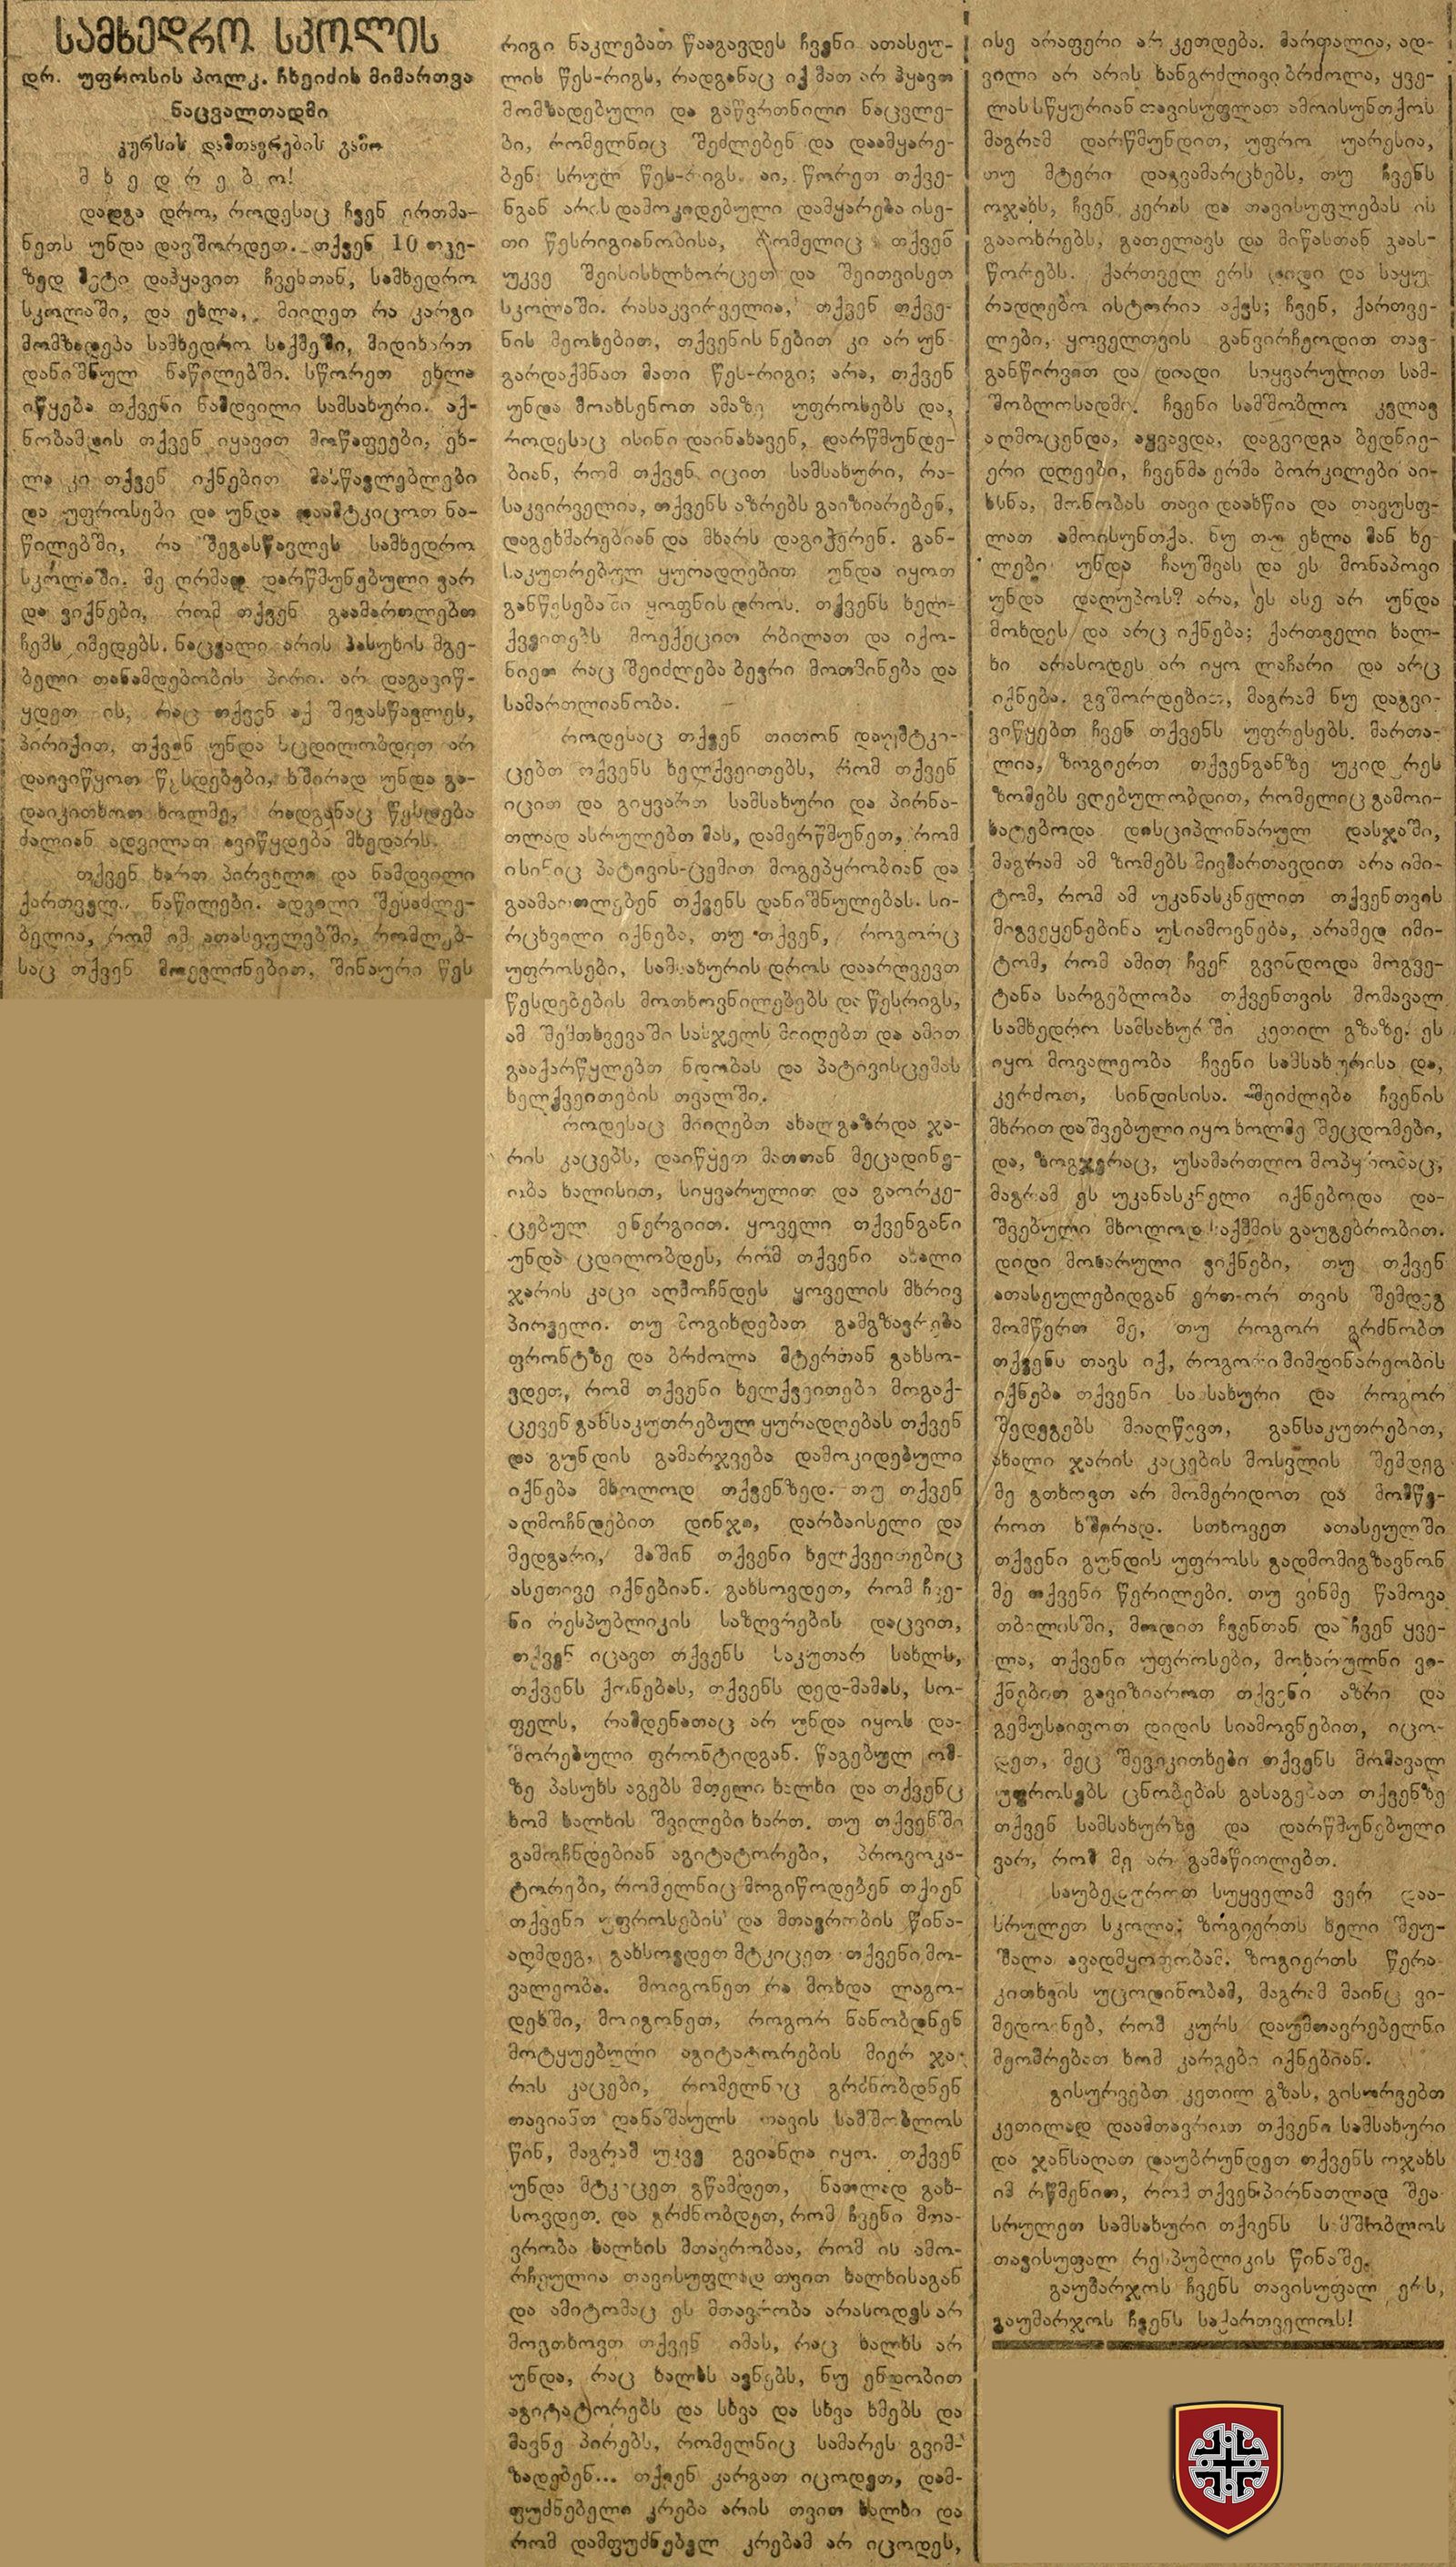 სამხედრო სკოლის
დრ. უფროსის პოლკ. ჩხეიძის მიმართვა
ნაცვალთადმი
კურსის დამთავრების გამო
მ ხ ე დ რ ე ბ ო!
დადგა დრო, როდესაც ჩვენ ერთმა-
ნეთს უნდა დავშორდეთ. თქვენ 10 თვე-
ზედ მეტი დაჰყავით ჩვენთან, სამხედრო
სკოლაში, და ეხლა, მიიღეთ რა კარგი
მომზადება სამხედრო საქმეში, მიდიხართ
დანიშნულ ნაწილებში. სწორეთ ეხლა
იწყება თქვენი ნამდვილი სამსახური. აქ-
ნობამდის თქვენ იყავით მოწაფეები, ეხ-
ლა კი თქვენ იქნებით მასწავლებლები
და უფროსები და უნდა დაამტკიცოთ ნა-
წილებში, რა შეგასწავლეს სამხედრო
სკოლაში. მე ღრმად დარწმუნებული ვარ
და ვიქნები, რომ თქვენ გაამართლებთ
ჩემს იმედებს. ნაცვალი არის პასუხის მგე-
ბელი თანამდებობის პირი. არ დაგავიწ-
ყდეთ ის, რაც თქვენ აქ შეგასწავლეს,
პირიქით, თქვენ უნდა სცდილობდეთ არ
დაივიწყოთ წესდებები, ხშირად უნდა გა-
დაიკითხოთ ხოლმე, რადგანაც წესდება
ძალიან ადვილათ ავიწყდება მხედარს.
თქვენ ხართ პირველი და ნამდვილი
ქართველი ნაწილები. ადვილი შესაძლე-
ბელია, რომ იმ ათასეულებში, რომლებ-
საც თქვენ მოევლინებით, შინაური წეს
რიგი ნაკლებათ წააგავდეს ჩვენი ათასეუ-
ლის წეს-რიგს, რადგანაც იქ მათ არ ჰყავთ
მომზადებული და გაწვრთნილი ნაცვლე-
ბი, რომელნიც შეძლებენ და დაამყარე-
ბენ სრულ წეს-რიგს. აი, წორეთ თქვე-
ნგან არის დამოკიდებული დამყარება ისე-
თი წესრიგიანობისა, რომელიც თქვენ
უკვე შეისისხლხორცეთ და შეითვისეთ
სკოლაში. რასაკვირველია, თქვენ თქვე-
ნის მეოხებით, თქვენის ნებით კი არ უნ-
გარდაქმნათ მათი წეს-რიგი; არა, თქვენ
უნდა მოახსენოთ ამაზე უფროსებს და,
როდესაც ისინი დაინახავენ, დარწმუნდე-
ბიან, რომ თქვენ იცით სამსახური, რა-
საკვირველია, თქვენს აზრებს გაიზიარებენ,
დაგეხმარებიან და მხარს დაგიჭერენ. გან-
საკუთრებულ ყურადღებით უნდა იყოთ
განწესებაში ყოფნის დროს. თქვენს ხელ-
ქვეითებს მოექეცით რბილათ და იქო-
ნიეთ რაც შეიძლება ბევრი მოთმინება და
სამართლიანობა.
როდესაც თქვენ თითონ დაუმტკი-
ცებთ თქვენს ხელქვეითებს, რომ თქვენ
იცით და გიყვართ სამსახური და პირნა-
თლად ასრულებთ მას, დამერწმუნეთ, რომ
ისინიც პატივის-ცემით მოგეპყრობიან და
გაამართლებენ თქვენს დანიშნულებას. სი-
რცხვილი იქნება, თუ თქვენ, როგორც
უფროსები, სამსახურის დროს დაარღვევთ
წესდებების მოთხოვნილებებს და წესრიგს,
ამ შემთხვევაში სასჯელს მიიღებთ და ამით
გააქარწყლებთ ნდობას და პატივისცემას
ხელქვეითების თვალში.
როდესაც მიიღებთ ახალგაზრდა ჯა-
რის კაცებს, დაიწყეთ მათთან მეცადინე-
ობა ხალისით, სიყვარულით და გაორკე-
ცებულ ენერგიით. ყოველი თქვენგანი
უნდა ცდილობდეს, რომ თქვენი ახალი
ჯარის კაცი აღმოჩნდეს ყოველის მხრივ
პირველი. თუ მოგიხდებათ გამგზავრება
ფრონტზე და ბრძოლა მტერთან გახსო-
ვდეთ, რომ თქვენი ხელქვეითები მოგაქ-
ცევენ განსაკუთრებულ ყურადღებას თქვენ
და გუნდის გამარჯვება დამოკიდებული
იქნება მხოლოდ თქვენზედ. თუ თქვენ
აღმოჩნდებით დინჯი, დარბაისელი და
მედგარი, მაშინ თქვენი ხელქვეითებიც
ასეთივე იქნებიან. გახსოვდეთ, რომ ჩვე-
ნი რესპუბლიკის საზღვრების დაცვით,
თქვენ იცავთ თქვენს საკუთარ სახლს,
თქვენს ქონებას, თქვენს დედ-მამას, სო-
ფელს, რამდენათაც არ უნდა იყოს და-
შორებული ფრონტიდგან. წაგებულ ომ-
ზე პასუხს აგებს მთელი ხალხი და თქვენც
ხომ ხალხის შვილები ხართ. თუ თქვენში
გამოჩნდებიან აგიტატორები, პროვოკა-
ტორები, რომელნიც მოგიწოდებენ თქვენ
თქვენი უფროსების და მთავრობის წინა-
აღმდეგ, გახსოვდეთ მტკიცეთ თქვენი მო-
ვალეობა. მოიგონეთ რა მოხდა ლაგო-
დეხში, მოიგონეთ, როგორ ნანობდნენ
მოტყუებული აგიტატორების მიერ ჯა-
რის კაცები, რომელნიც გრძნობდნენ
თავიანთ დანაშაულს თავის სამშობლოს
წინ, მაგრამ უკვე გვიანღა იყო. თქვენ
უნდა მტკიცეთ გწამდეთ, ნათლად გახ-
სოვდეთ და გრძნობდეთ, რომ ჩვენი მთა-
ვრობა ხალხის მთავრობაა, რომ ის ამო-
რჩეულია თავისუფლად თვით ხალხისაგან
და ამიტომაც ეს მთავრობა არასოდეს არ
მოგთხოვთ თქვენ იმას, რაც ხალხს არ
უნდა, რაც ხალხს ავნებს, ნუ ენდობით
აგიტატორებს და სხვა და სხვა ხმებს და
მავნე პირებს, რომელნიც სამარეს გვიმ-
ზადებენ... თქვენ კარგათ იცოდეთ, დამ-
ფუძნებელი კრება არის თვით ხალხი და
რომ დამფუძნებელ კრებამ არ იცოდეს,
ისე არაფერი არ კეთდება. მართალია, ად-
ვილი არ არის ხანგრძლივი ბრძოლა, ყვე-
ლას სწყურიან თავისუფლათ ამოისუნთქოს
მაგრამ დარწმუნდით, უფრო უარესია,
თუ მტერი დაგვამარცხებს, თუ ჩვენს
ოჯახს, ჩვენ კერას და თავისუფლებას ის
გააოხრებს, გათელავს და მიწასთან გაას-
წორებს. ქართველ ერს დიდი და საყუ-
რადღებო ისტორია აქვს; ჩვენ, ქართვე-
ლები, ყოველთვის განვირჩეოდით თავ-
განწირვით და დიადი სიყვარულით სამ-
შობლოსადმი. ჩვენი სამშობლო კვლავ
აღმოცენდა, აყვავდა, დაგვიდგა ბედნიე-
ერი დღეები, ჩვენმა ერმა ბორკილები აი-
ხსნა, მონობას თავი დაახწია და თავუსფ-
ლათ ამოისუნთქა. ნუ თუ ეხლა მან ხე-
ლები უნდა ჩაუშვას და ეს მონაპოვი
უნდა დაღუპოს? არა, ეს ასე არ უნდა
მოხდეს და არც იქნება; ქართველი ხალ-
ხი არასოდეს არ იყო ლაჩარი და არც
იქნება. გვშორდებით, მაგრამ ნუ დაგვი-
ვიწყებთ ჩვენ თქვენს უფრესებს. მართა-
ლია, ზოგიერთ თქვენგანზე უკიდურეს
ზომებს ვღებულობდით, რომელიც გამოი-
ხატებოდა დისციპლინარულ დასჯაში,
მაგრამ ამ ზომებს მივმართავდით არა იმი-
ტომ, რომ ამ უკანასკნელით თქვენთვის
მიგვეყენებინა უსიამოვნება, არამედ იმი-
ტომ, რომ ამით ჩვენ გვინდოდა მოგვე-
ტანა სარგებლობა თქვენთვის მომავალ
სამხედრო სამსახურში კეთილ გზაზე. ეს
იყო მოვალეობა ჩვენი სამსახურისა და,
კერძოთ, სინდისისა. შეიძლება ჩვენის
მხრით დაშვებული იყო ხოლმე შეცდომები,
და, ზოგჯერაც, უსამართლო მოპყრობაც,
მაგრამ ეს უკანასკნელი იქნებოდა და-
შვებული მხოლოდ საქმის გაუგებრობით.
დიდი მოხარული ვიქნები, თუ თქვენ
ათასეულებიდგან ერთ-ორ თვის შემდეგ
მომწერთ მე, თუ როგორ გრძნობთ
თქვენს თავს იქ, როგორი მიმდინარეობის
იქნება თქვენი სამსახური და როგორ
შედეგებს მიაღწევთ, განსაკუთრებით,
ახალი ჯარის კაცების მოსვლის შემდეგ
მე გთხოვთ არ მომერიდოთ და მომწე-
როთ ხშირად. სთხოვეთ ათასეულში
თქვენი გუნდის უფროსს გადმომიგზავნონ
მე თქვენი წერილები. თუ ვინმე წამოვა
თბილისში, მოდით ჩვენთან და ჩვენ ყვე-
ლა, თქვენი უფროსები, მოხარულნი ვი-
ქნებით გავიზიაროთ თქვენი აზრი და
გემუსაიფოთ დიდის სიამოვნებით, იცო-
დეთ, მეც შევიკითხები თქვენს მომავალ
უფროსებს ცნობების გასაგებათ თქვენზე
თქვენ სამსახურზე და დარწმუნებული
ვარ, რომ მე არ გამაწითლებთ.
საუბედუროთ სუყველამ ვერ დაა-
სრულეთ სკოლა; ზოგიერთს ხელი შეუ-
შალა ავადმყოფობამ. ზოგიერთს წერა
კითხვის უცოდინობამ, მაგრამ მაინც ვი-
მედოვნებ, რომ კურს დაუმთავრებელნი
მეომრებათ ხომ კარგები იქნებიან.
გისურვებთ კეთილ გზას, გისურვებთ
კეთილად დაამთავროთ თქვენი სამსახური
და ჯანსაღათ დაუბრუნდეთ თქვენს ოჯახს
იმ რწმენით, რომ თქვენ პირნათლად შეა-
სრულეთ სამსახური თქვენს სამშობლოს
თავისუფალ რესპუბლიკის წინაშე.
გაუმარჯოს ჩვენს თავისუფალ ერს,
გაუმარჯოს ჩვენს საქართველოს!